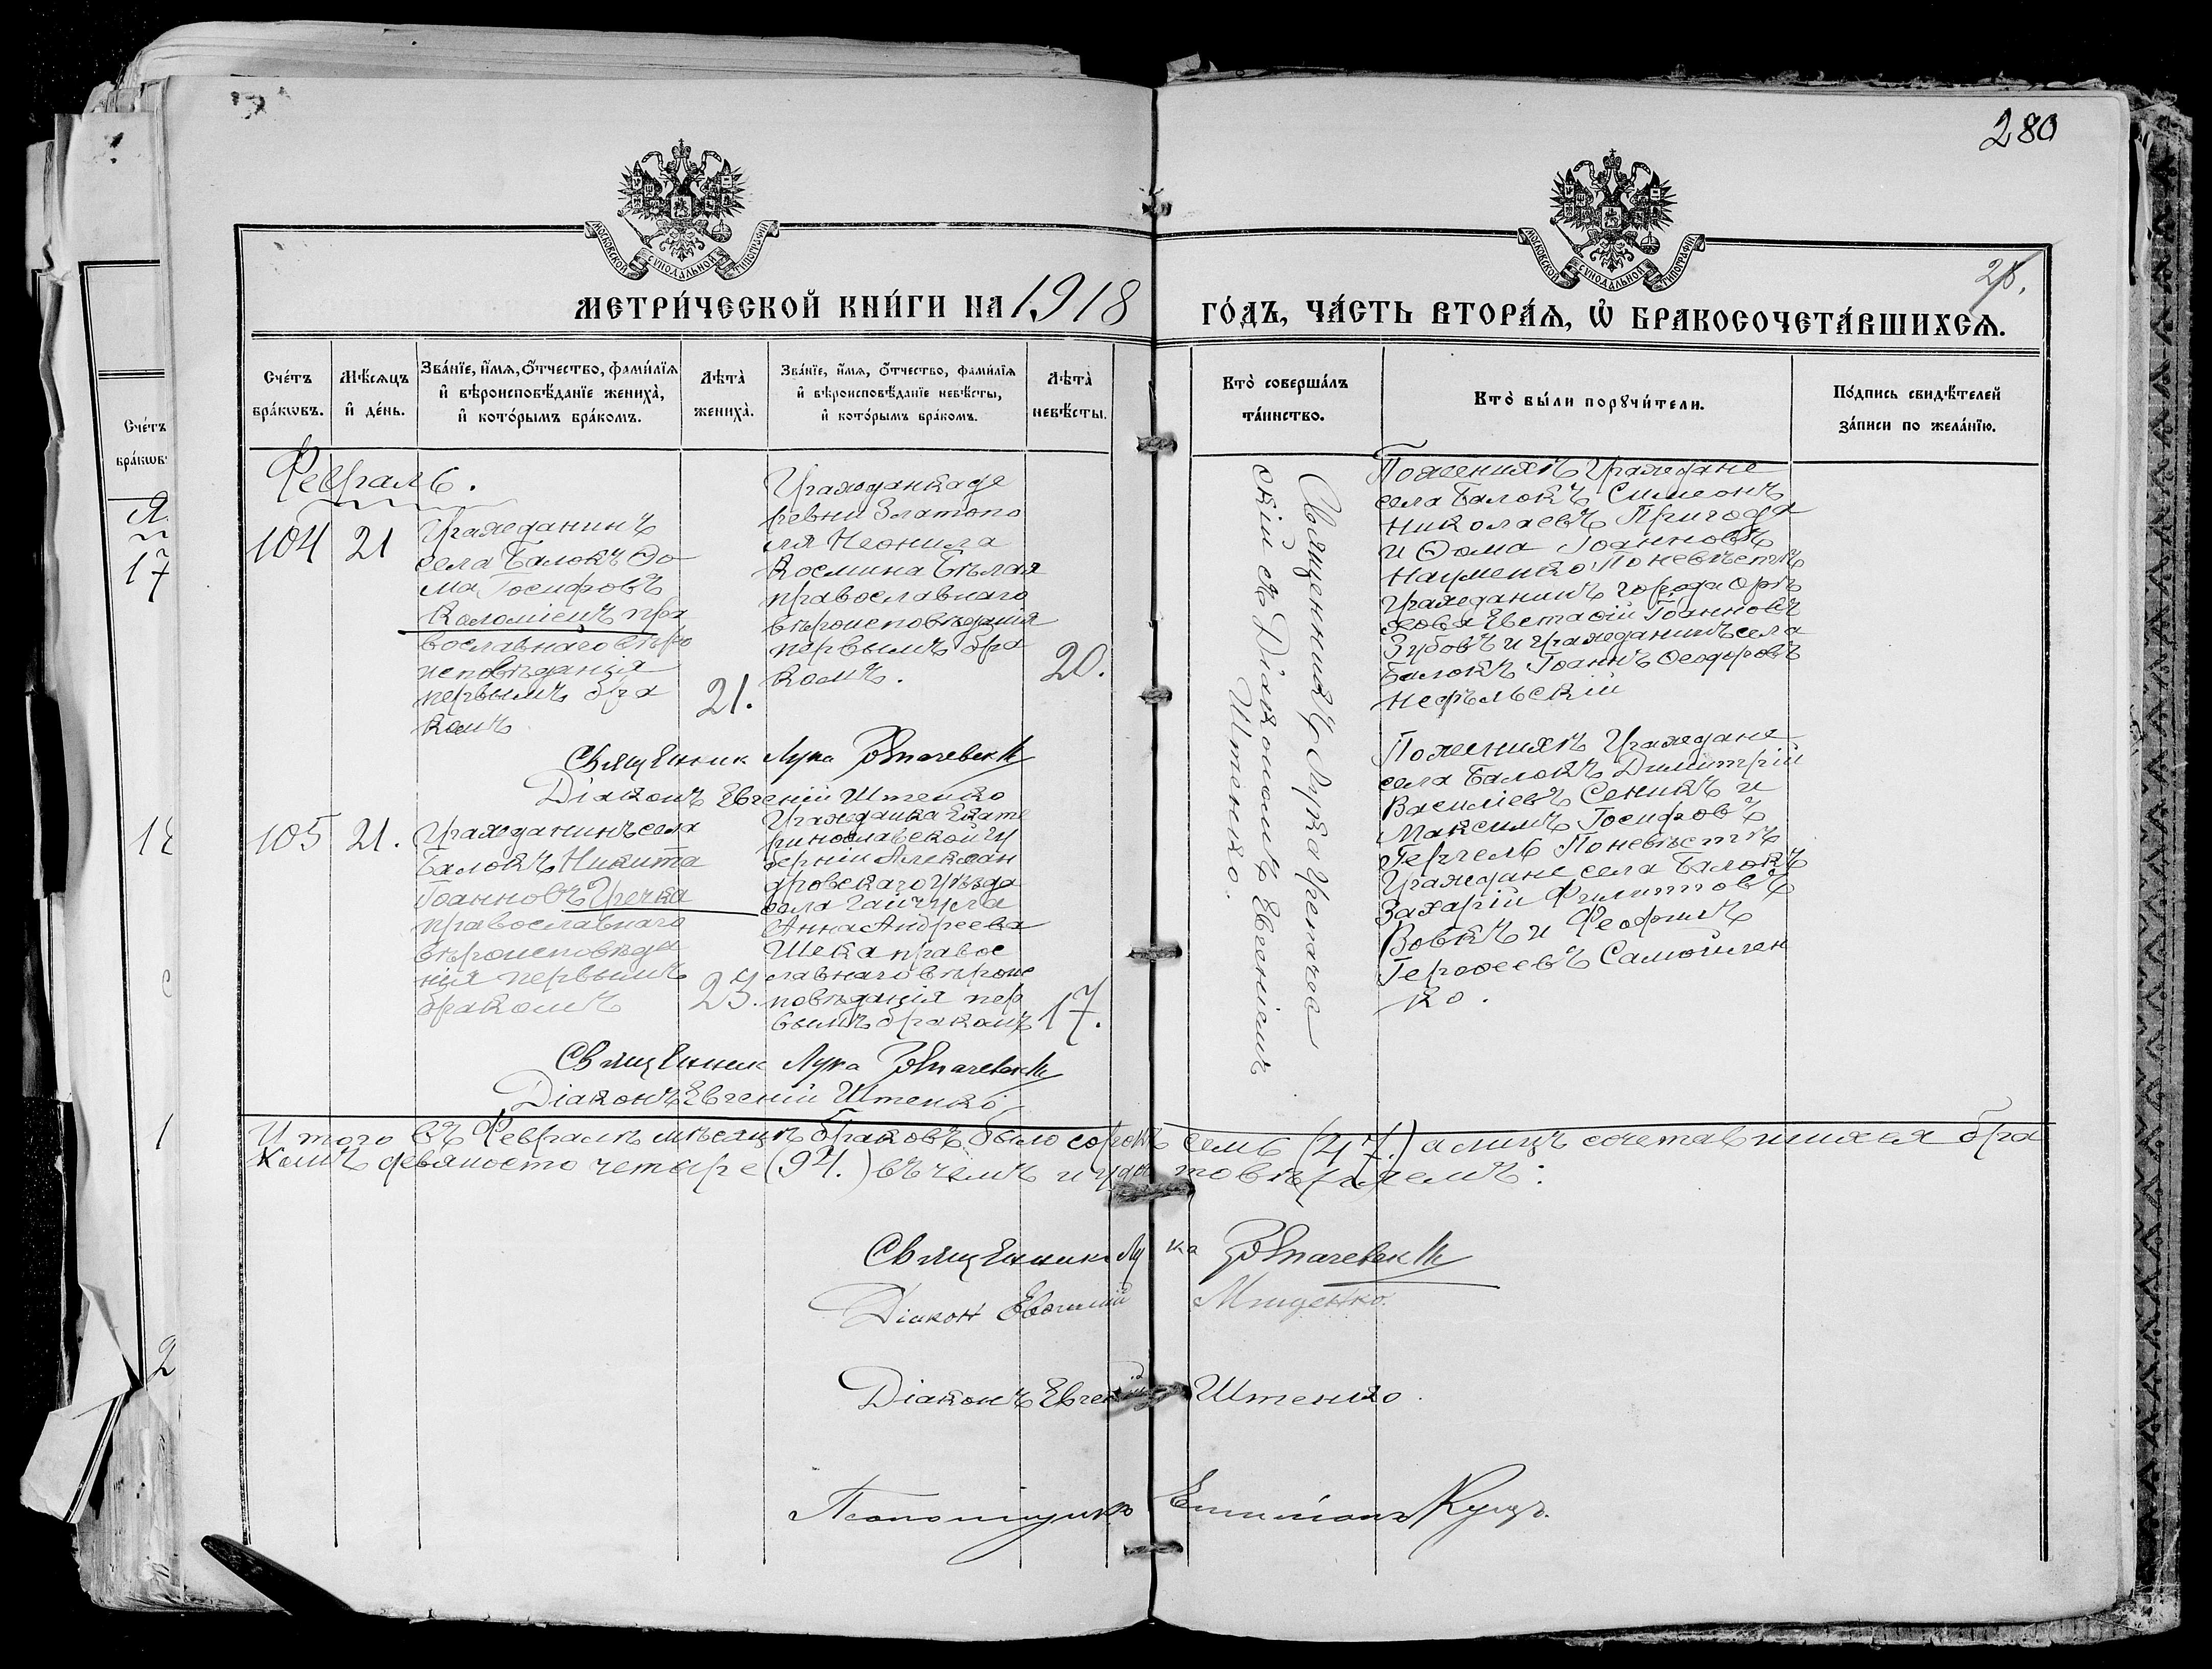 280
МОСКОВСКОЙ СѴНОДАЛЬНОЙ ТИПОГРАФІИ
МОСКОВСКОЙ СѴНОДАЛЬНОЙ ТИПОГРАФІИ
28.
МЕТРИ́ЧЕСКОЙ КНИ́ГИ НА 1918
ГО́ДЪ, ЧА́СТЬ ВТОРА́Ѧ, Ѡ҆ БРАКОСОЧЕТА́ВШИХСѦ.
Сче́тъ
бра́кѡвъ.
Мѣ́сѧцъ
и҆ де́нь.
Зва́нїе, и҆́мѧ, ѻ҆́тчество, фами́лїѧ
и҆ вѣроисповѣ́данїе жениха̀,
и҆ кото́рымъ бра́комъ.
Лѣта̀
жениха̀.
Зва́нїе, и҆́мѧ, ѻ҆́тчество, фами́лїѧ
и҆ вѣроисповѣ́данїе невѣ́сты,
и҆ кото́рымъ бра́комъ.
Лѣта̀
невѣ́сты.
Кто̀ соверша́лъ
та́инство.
Кто̀ бы́ли порꙋчи́тели.
По́дпись свидѣ́телей
за́писи по жела́нїю.
Февраль.
104
21
Гражданинъ
села Балокъ Ѳо
ма Іосифовъ
Коломіецъ пра
вославнаго вѣро
исповѣданія
первымъ бра
комъ
21.
Гражданка де
ревни Златопо
ля Неонила
Космина Бѣлая
православнаго
вѣроисповѣданія
первымъ бра
комъ.
20.
Священникъ Лука
скій съ Діакономъ Евгеніемъ
Штенко.
По женихѣ Граждане
села Балокъ Симеонъ
Николаевъ Пригода
и Ѳома Іоанновъ
Науменко По невѣстѣ
Гражданинъ города Орѣ
хова Евстафій Іоанновъ
Зубовъ и гражданинъ села
Балокъ Іоаннъ Ѳеодоровъ
Священник Лука
Діаконъ Евгеній Штенко
105
21.
Гражданинъ села
Балокъ Никита
Іоанновъ Гречка
православнаго
вѣроисповѣда
нія первымъ
бракомъ
23.
Гражданка Екате
ринославской гу
берніи Алексан
дровскаго уѣзда
села Гайчула
Анна Андреева
Шека правос
лавнаго вѣроис
повѣданія пер
вымъ бракомъ
17.
По женихѣ Граждане
села Балокъ Димитрій
Василіевъ Сеникъ и
Максимъ Іосифовъ
По невѣстѣ
Граждане села Балокъ
Захарій Филипповъ
Вовкъ и Феофилъ
Герофеевъ Самойлен
ко.
Священник Лука
Діаконъ Евгеній Штенко
Итого въ Февралѣ мѣсяцѣ браковъ было сорокъ семь (47.) а лицъ сочетавшихся бра
комъ девяносто четыре (94.) въ чемъ и удостовѣряемъ:
Священник Лука
Діакон Евгеній
Діаконъ Евгеній Штенко.